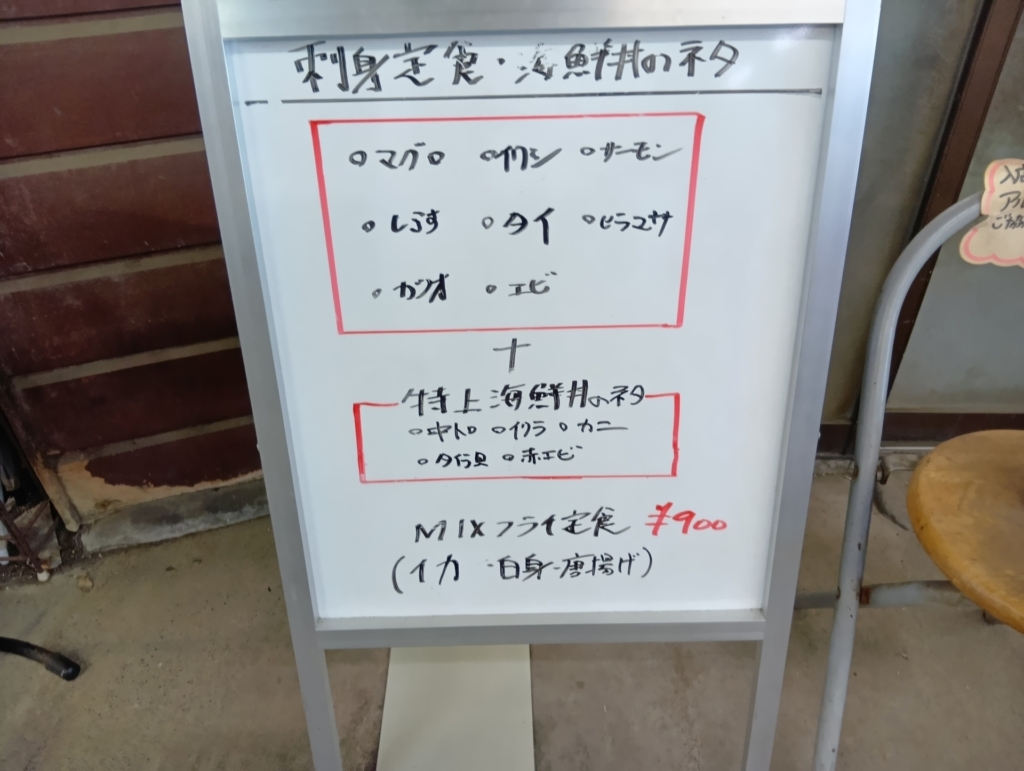 刺身定食・海鮮丼のネタ
○マグロ ○イワシ ○サーモン
○しらす ○タイ ○ヒラマサ
○カツオ ○エビ
+
特上海鮮丼のネタ
○中トロ ○イクラ ○カニ
○赤エビ
MIXフライ定食 ¥900
(イカ・白身・唐揚げ)